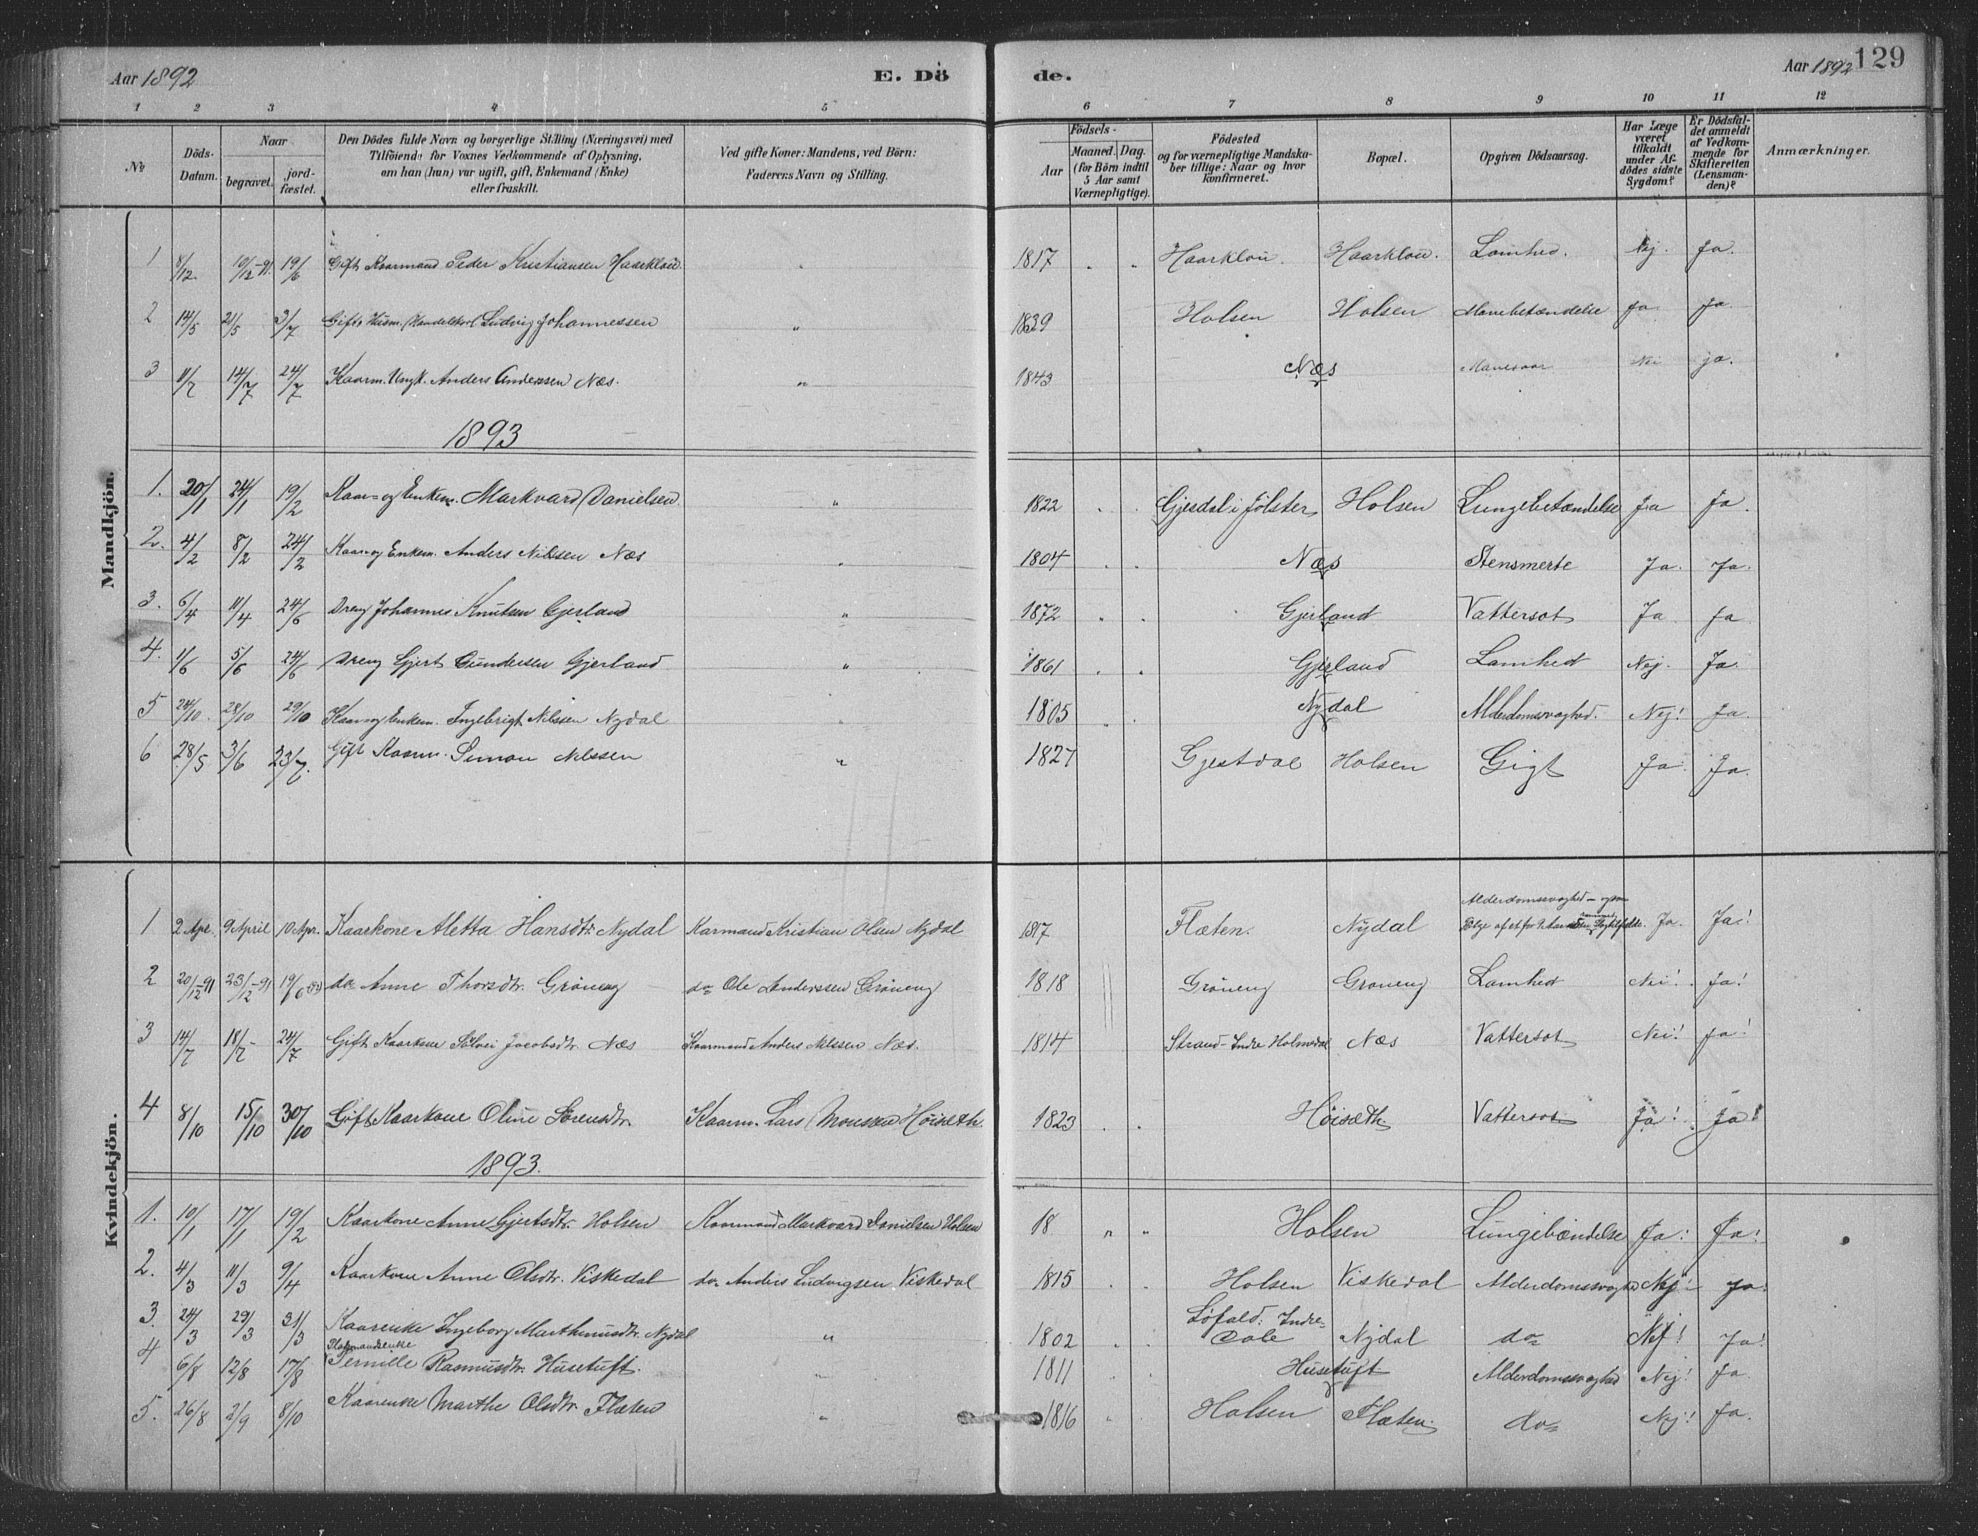 Aar 1892 E. Dö de. Aar 1892 129
1 2 3 4 5 6 7 8 9 10 11 12
№ Döds-Datum. Naar begravet. jord-fæstet. Den Dödes fulde Navn og borgerlige Stilling (Næringsvei) med Tilföiende for Voxnes Vedkommende af Oplysning, om han (hun) var ugift, gift, Enkemand (Enke) eller fraskilt. Ved gifte Koner: Mandens, ved Börn: Faderens Navn og Stilling. Födsels- Aar Maaned. Dag. (for Börn indtil 5 Aar samt Værnepligtige). Födested og for værnepligtige Mandskaber tillige: Naar og hvor konfirmeret. Bopæl. Opgiven Dödsaarsag. Har Læge været tilkaldt under Afdödes sidste Sygdom? Er Dödsfaldet anmeldt af Vedkommende for Skifteretten (Lensmanden)? Anmærkninger.
Mandkjön.
1 8/12 10/12-91 19/6 Gift Kaarmand Peder Kristiansen Haarklou " 1817 " " Haarklou. Haarklou. Lamhed. Nej. Ja.
2 14/5 21/5 3/7 Gift Husm. (Handelskar) Ludvig Johannessen " 1839 Holsen Holsen Mavebetændelse Ja Ja
3 11/7 14/7 24/7 Kaarm. Ungk. Anders Anderssen Næs. " 1843 Næs Mavesaar Nei ja.
1893
1. 20/1 24/1 19/2 Kaar- og Enkem. Markvard Danielsen " 1822 " " Gjesdal i Jølster Holsen Lungebetændelse Ja Ja.
2. 4/2 8/2 24/2 Kaar- og Enkem. Anders Nilssen Næs " 1804 " " Næs Stensmerte Ja. Ja.
3. 6/4 11/4 24/6 Dreng Johannes Knutsen Gjerland " 1872 " " Gjerland Vattersot Ja Ja
4. 1/6 5/6 24/6 Dreng Gjert Gundersen Gjerland " 1861 " " Gjerland Lamhed Nej. Ja.
5 24/10. 28/10 29/10 Kaar og Enkem. Ingebrigt Nilssen Nydal " 1805 " " Nydal Alderdomssvaghed. Nej! Ja.
6 28/5 3/6 23/7. Gift Kaarm. Simon Nilssen " 1827 Gjestdal Holsen Gigt Ja. Ja.
Kvindekjön.
1 2 Apr. 9 April 10 Apr. Kaarkone Aletta Hansdtr. Nydal Karmand Kristian Olsen Nydal 1817 Flæten. Nydal Alderdomssvaghed Ja. Ja!
2 20/12-91 23/12-91 19/6 do Anne Thorsdtr. Grøneng do Ole Anderssen Grøneng 1818 Grøneng Grøneng Lamhed Nei! Ja!
3 14/7 18/7 24/7 Gift Kaarkone Sølvei Jacobsdtr. Næs Kaarmand Anders Nilssen Næs. 1814 Strand-Indre Holmedal Næs Vattersot Nei! Ja!
4 8/10 15/10 30/10 Gift Kaarkone Oline Sørensdtr. Kaarm. Lars Monssen Høisæth 1823 " " Høisæth Vattersot Ja! Ja!
1893.
1. 10/1 17/1 19/2 Kaarkone Anne Gjertsdtr. Holsen Kaarmand Markvard Danielsen Holsen 18 " " Holsen Lungebændelse Ja! Ja!
2. 4/3 11/3 9/4 Kaarkone Anne Olsdtr. Viskedal do Anders Ludvigsen Viskedal 1815 " " Holsen Viskedal Alderdomssvaghed Nej! Ja!
3. 24/3 29/3 31/3 Kaarenke Ingeborg Marthinusdtr. Nydal " 1802 Indre-Dale Nydal do Nej! Ja!
4 6/8 12/8 17/8 Pernille Rasmusdtr. Husetuft. " 1811 Husetuft Alderdomssvaghed Nej! Ja
5. 26/8 2/9 8/10 Kaarenke Marthe Olsdtr. Flæten " 1816 " " Holsen Flæten. do Nej! Ja.